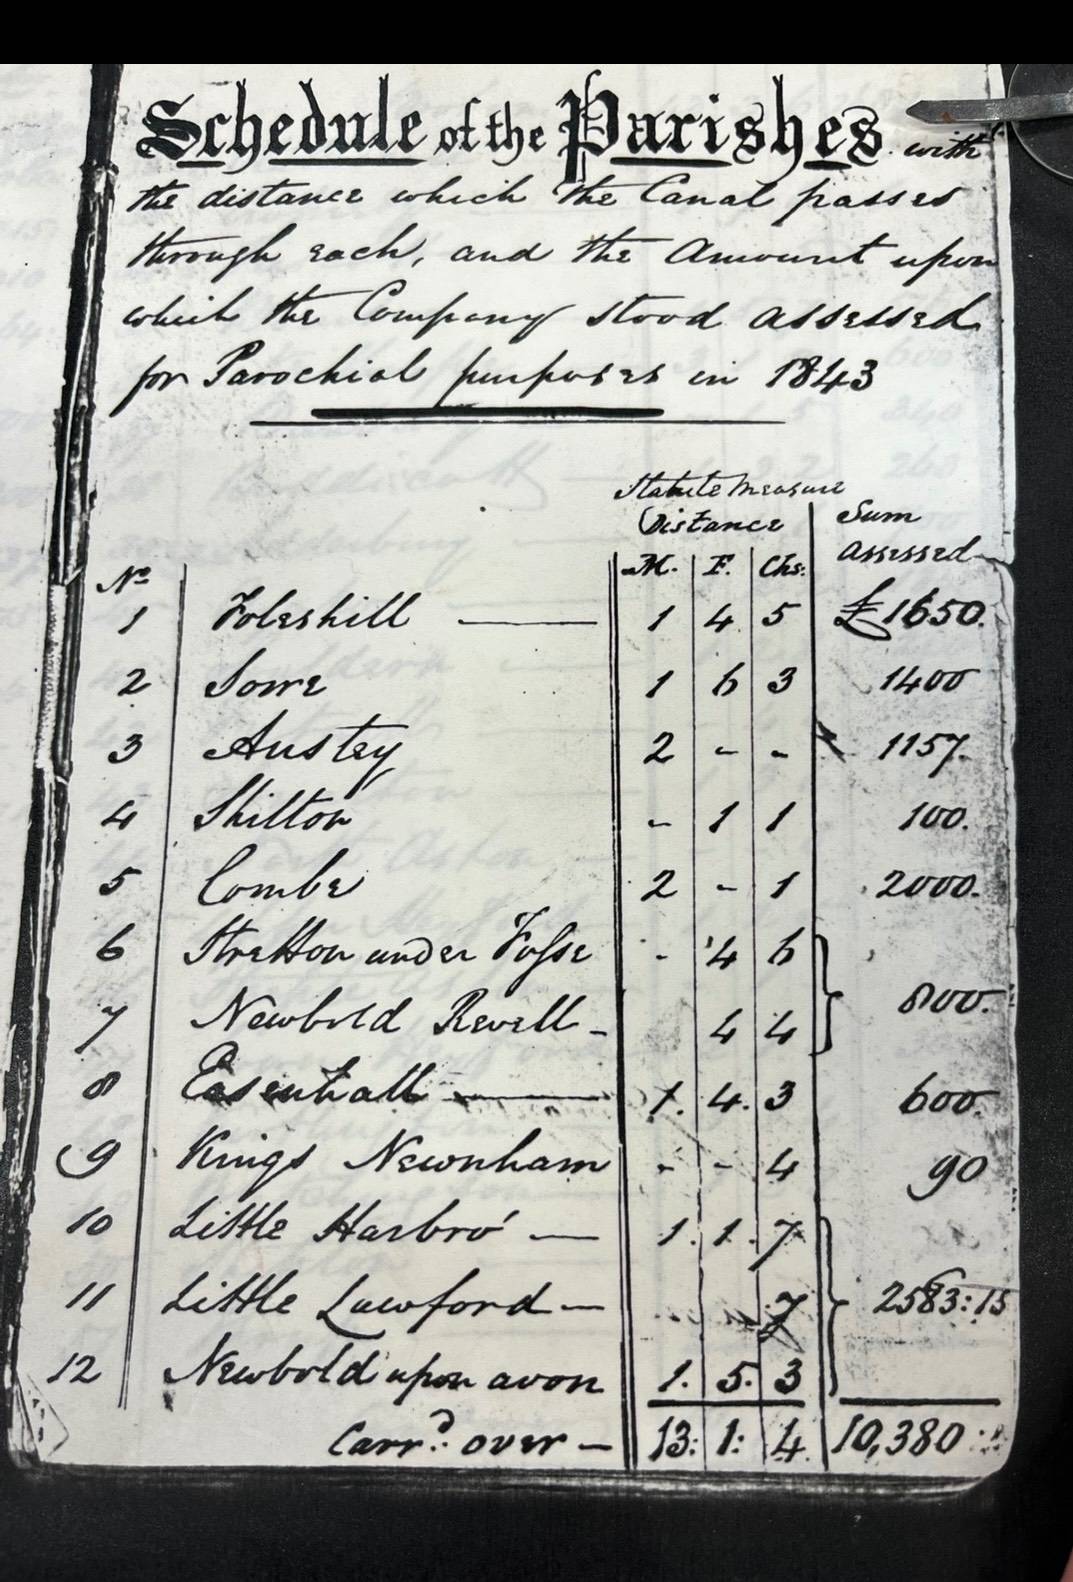 Schedule of the Parishes with
the distance which the Canal passes
through each, and the Amount upon
which the Company stood assessed
for Parochial purposes in 1843
Statute Measure
Distance Sum
assessed
No M. F. Chs:
1 Foleshill — 1 4 5 £1650.
2 Sowe 1 6 3 1400
3 Anstey 2 - - 1157.
4 Shilton - 1 1 100.
5 Combe 2 - 1 2000.
6 Stretton under Fosse - 4 6
7 Newbold Revell - 4 4 800.
8 Easenhall — 1. 4. 3 600.
9 Kings Newnham - - 4 90
10 Little Harbro' — 1. 1. 7
11 Little Lawford — 7 2583:15
12 Newbold upon avon 1. 5. 3
Carrd: over — 13: 1: 4 10,380